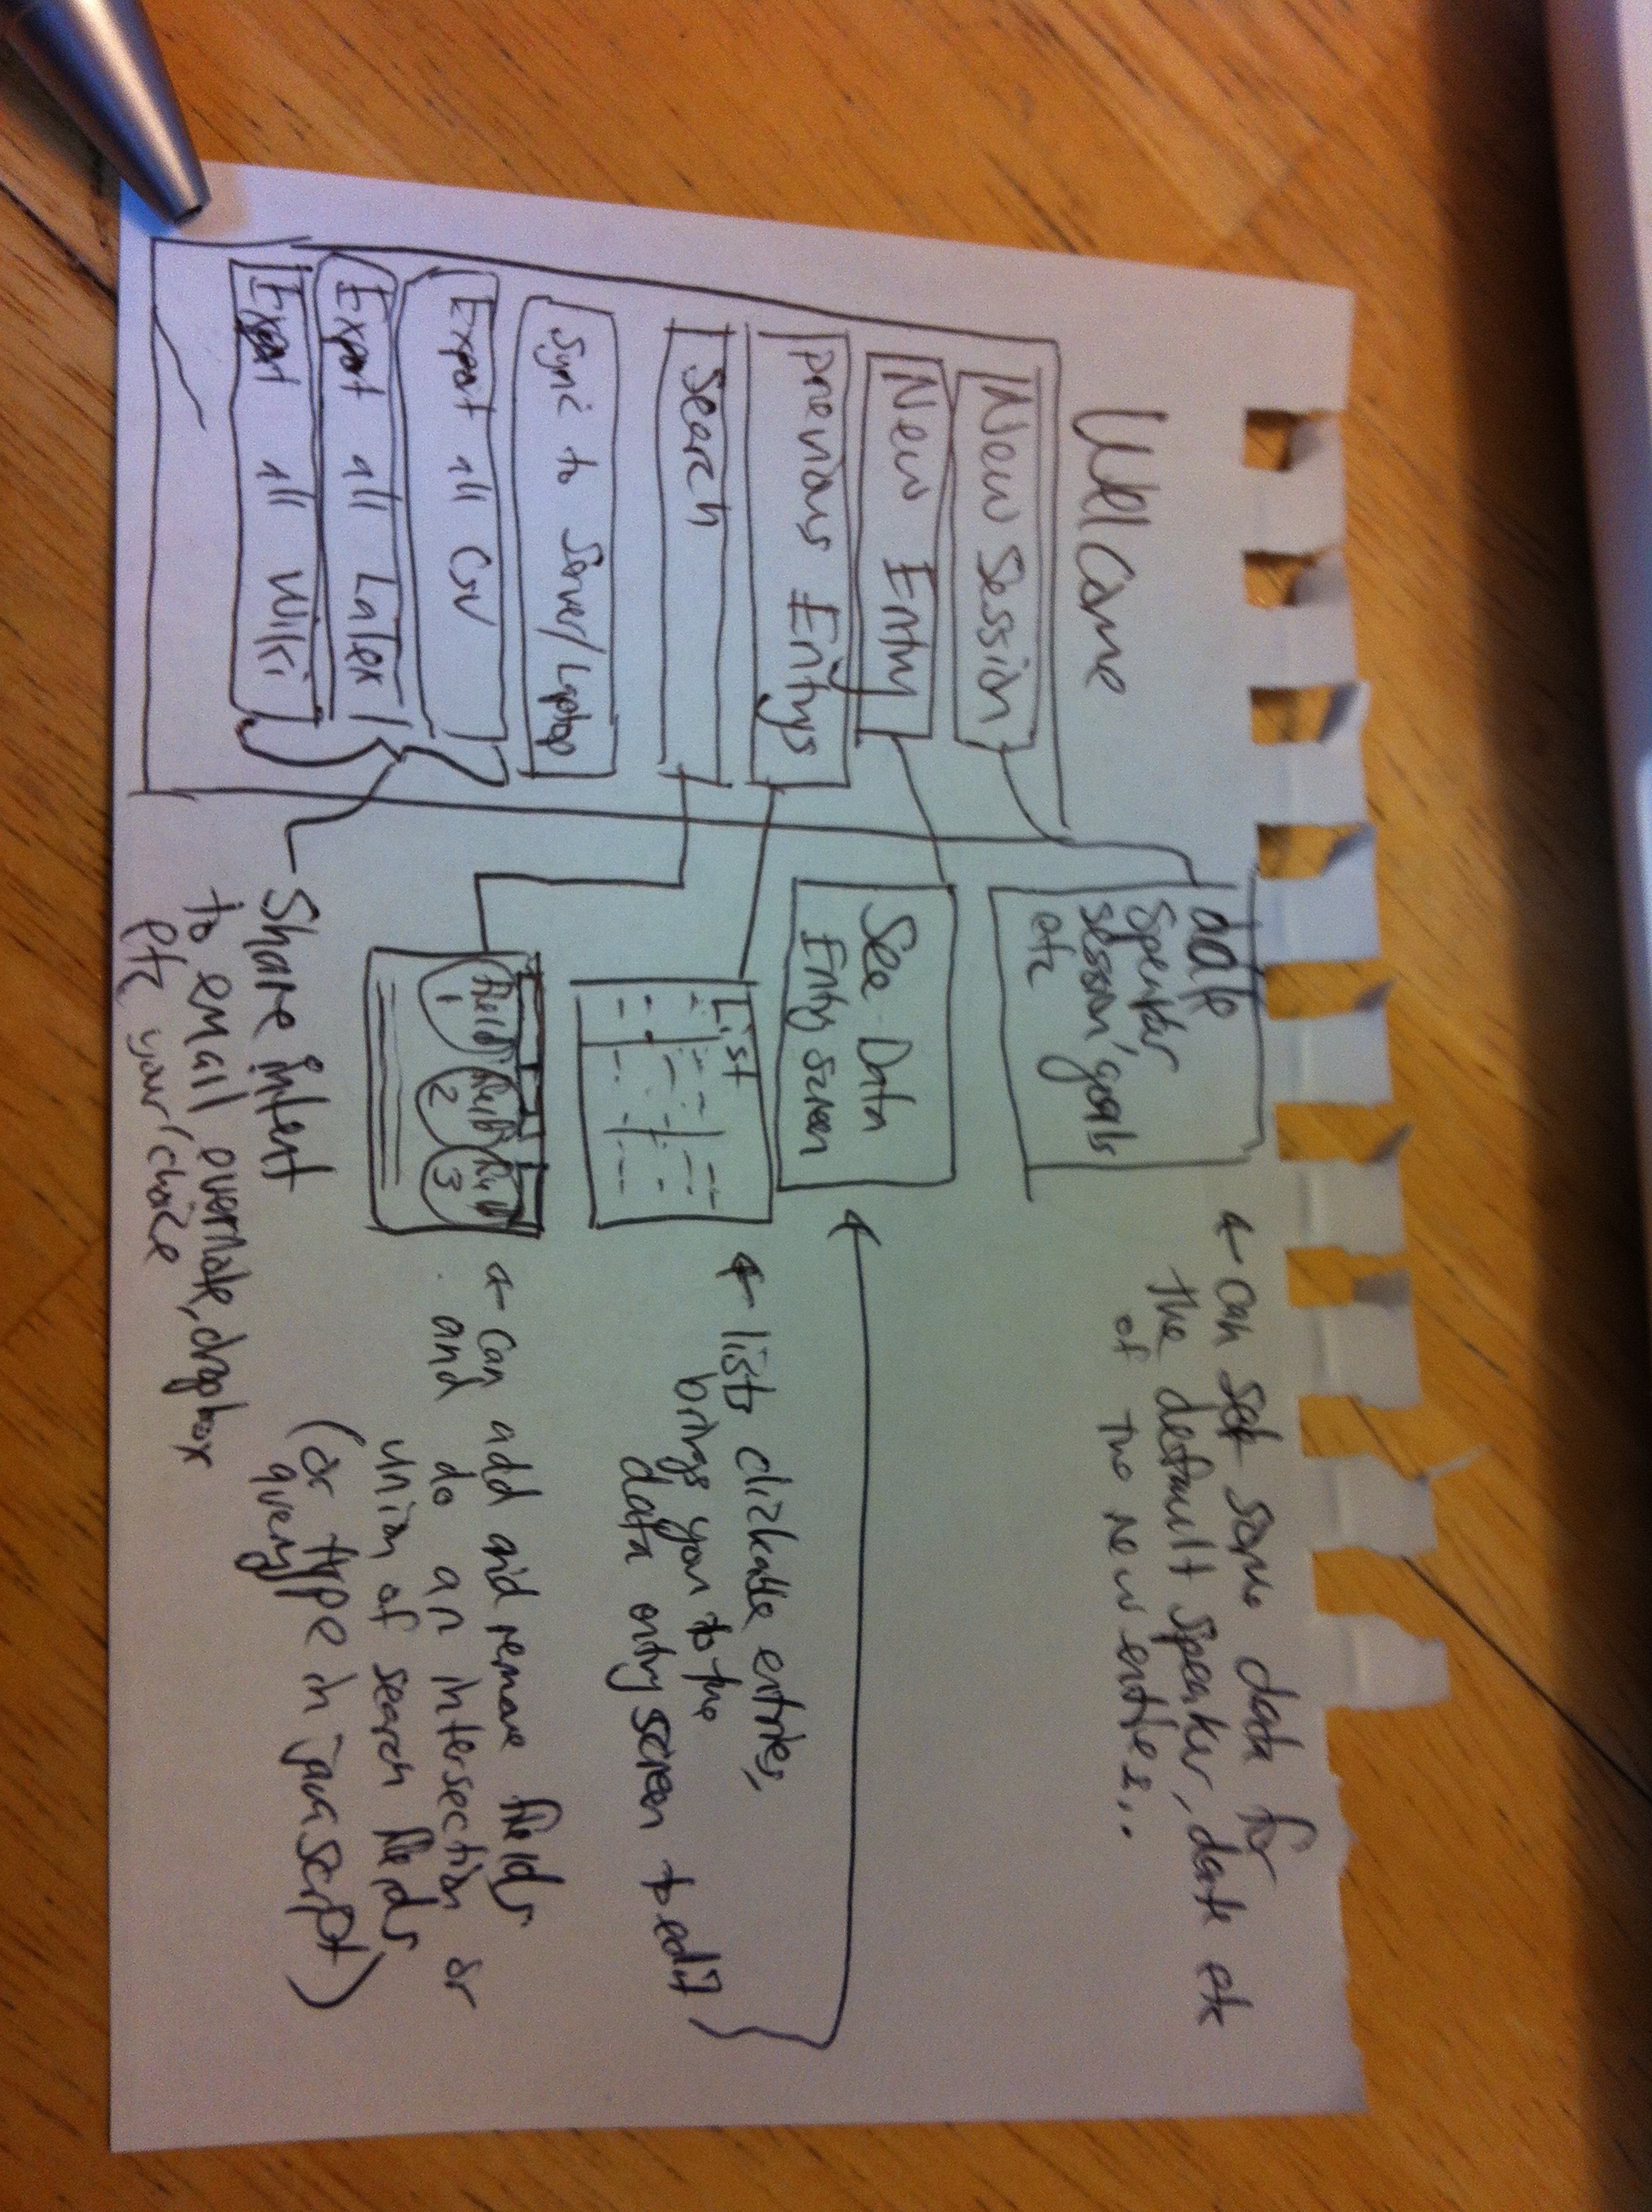 Welcome
New Session
New Entry
previous Entrys
Search
Sync to Server/Laptop
Export all CSV
Export all LaTex
Export all Wiki
date
Speaker
session, goals
etc
← can set some data for
the default speaker, date etc
of the new entries...
See Data
Entry screen
List
← lists clickable entries,
brings you to the
data entry screen to edit
field field field
1 2 3
← Can add and remove fields
and do an intersection or
union of search fields
(or type in javascript)
query
Share intent
to email evernote, dropbox
etc your choice